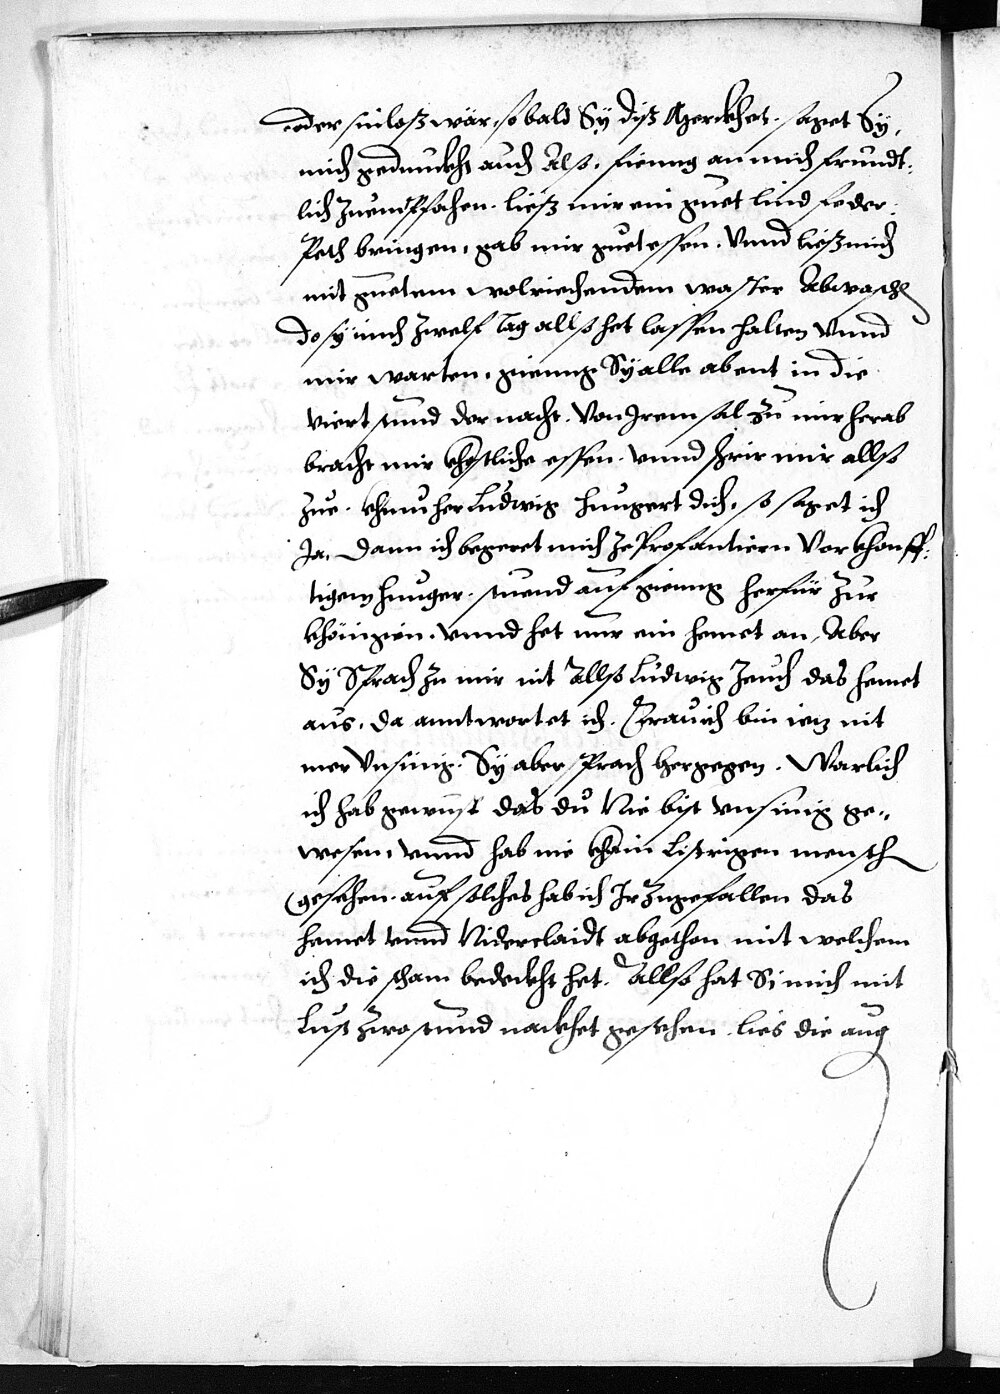 oder sinloß wär, so bald Sÿ diß Merckhet. saget Sÿ,
mich gedunckht auch Alß, fienng an mich frundt:
lich Zuempfachen. ließ mir ein guet lind feder:
Peth bringen, gab mir guet essen. Vnnd ließ mich
mit guetem wolriechendem wasser Abwasch
do sÿ mich Zwelf Tag allso het lassen halten Vnnd
mir warten, gienng Sÿ alle abent in die
viert stund der nacht. Von Irem sal Zu mir herab
bracht mir khöstliche essen. vnnd schrir mir allso
Zue. khum her Ludwig hungert dich, so saget ich
Ja, Dann ich begeret mich Ze Profantiern Vor khonff:
tigem hunger. stuend auf gienng herfür Zur
khöingin. vnnd het nur ein hemet an, Aber
Sÿ Sprach Zu mir nit Allso Ludwig Zeuch das hemet
aus, da anntwortet ich. Frau ich bin iez nit
mer Vnsinig. Sÿ aber sprach hergegen. Warlich
ich hab gewust das du Nie bist vnsinig ge„
wesen, vnnd hab nie khain Listigen mensch
gesehen. auf solches hab ich Ir Zugefallen das
hemet vnnd Niderclaidt abgethon mit welchem
ich die scham bedeckht het. Allso hat Si mich mit
Lust Zwo stund nackhet gesehen lies die aug